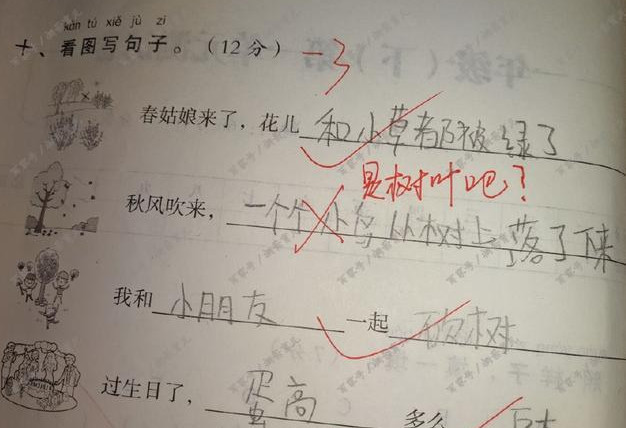 kàn tú xiě jù zi
十、看图写句子。（12分） -3
春姑娘来了，花儿和小草都被绿了
是树叶吧？
秋风吹来，一个个小鸟从树上落了下来
我和小朋友一起砍树
过生日了，蛋高多么巨大